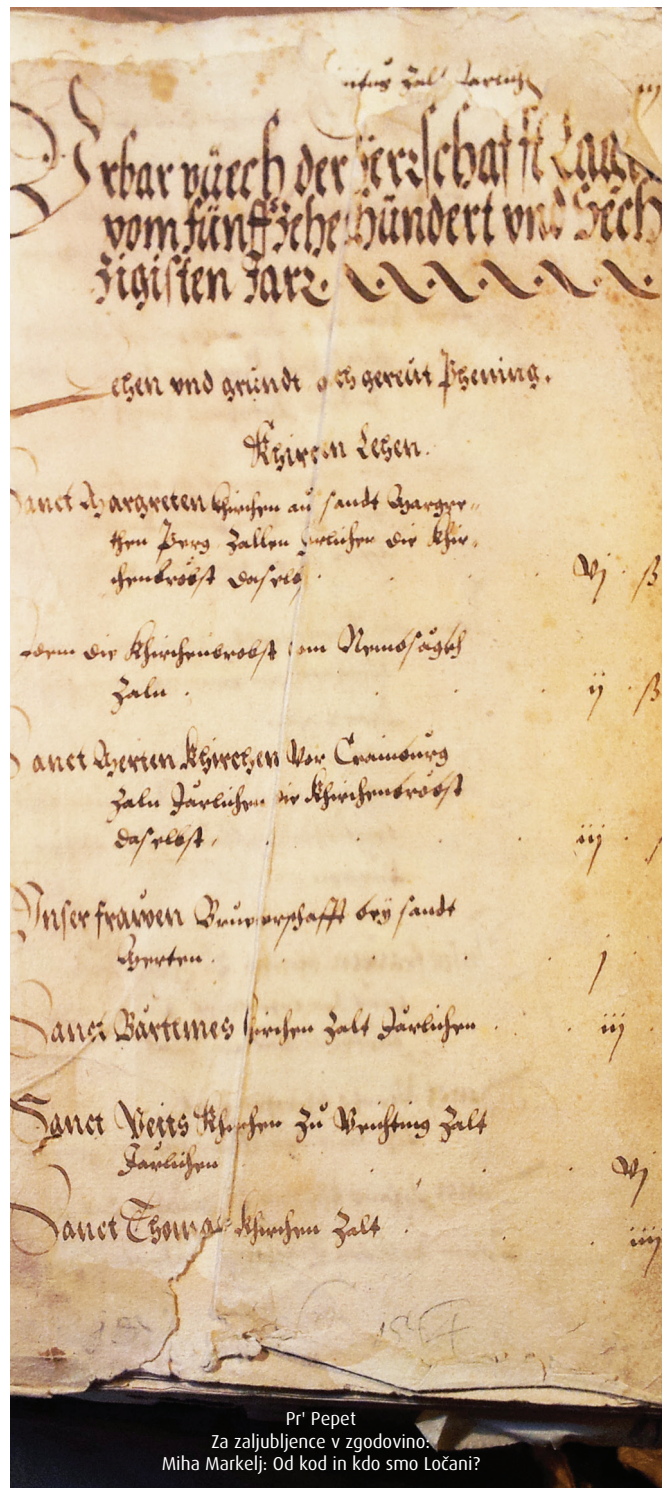 zalt Jarlich
iij
Vrbar püech der Herrschafft Lagk
vom fünffzehehündert vnd Sech
zigisten Jarr.
ehen vnd gründt gereüt Phening.
Khirchn Lehen.
Sanct Margreten khirchen aŭ sandt Margre=
then Perg Zallen Järlichen die khir=
chenbröbst daselbs . vj ß
Idem die khirchenbrobst
Zaln . ij ß
Sanct Merten khirchen vor Crainburg
Zaln Järlichen die khirchenbröbst
daselbst . iij
Vnser frawen Bruderschafft bey sandt
Merten . j
Sanct Bärtlmes khirchen Zalt Järlichen . iij
Sanct Veits khirchen Zŭ Zalt
Järlichen . vj
Sanct Thomas khirchen Zalt . iiij
Pr' Pepet
Za zaljubljence v zgodovino:
Miha Markelj: Od kod in kdo smo Ločani?